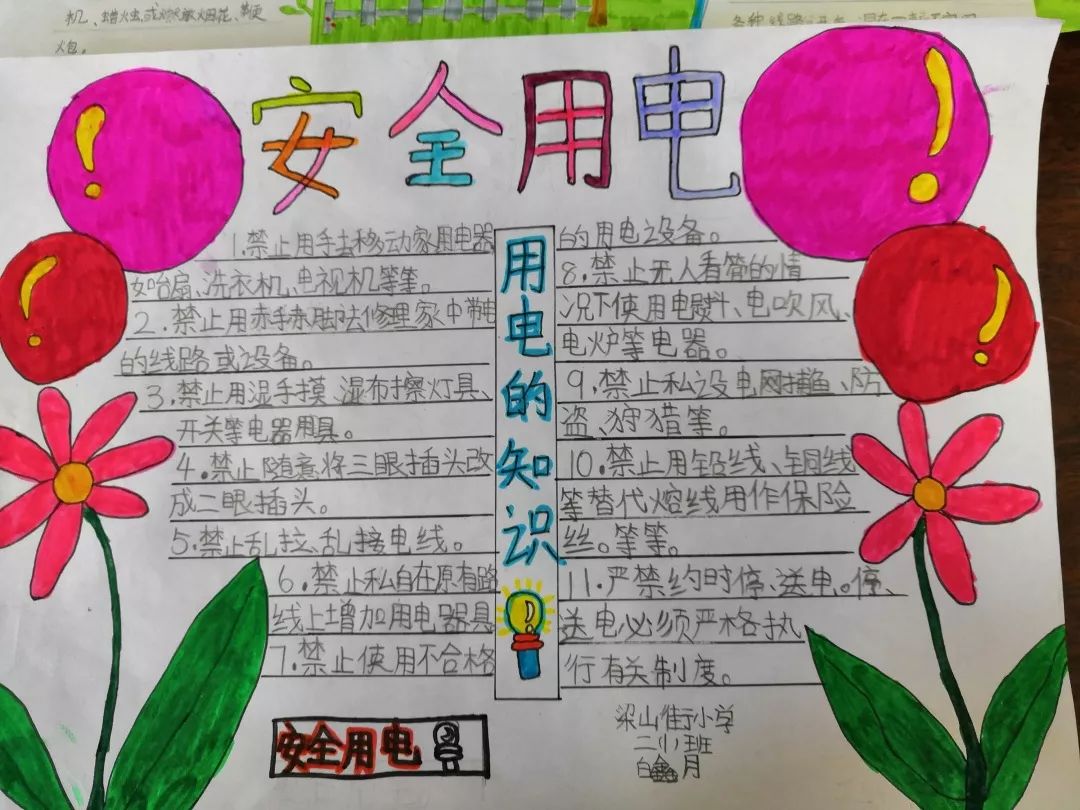 机、蜡烛或燃放烟花、鞭
炮。
安全用电
1.禁止用手去移动家用电器
如台扇、洗衣机、电视机等等。
2.禁止用赤手赤脚去修理家中带电
的线路或设备。
3.禁止用湿手摸、湿布擦灯具、
开关等电器用具。
4.禁止随意将三眼插头改
成二眼插头。
5.禁止乱拉、乱接电线。
6.禁止私自在原有路
线上增加用电器具
7.禁止使用不合格
用电的知识
的用电设备。
8.禁止无人看管的情
况下使用电熨斗、电吹风、
电炉等电器。
9.禁止私设电网捕鱼、防
盗、狩猎等。
10.禁止用铅线、铜线
等替代熔线用作保险
丝。等等。
11.严禁约时停、送电。停、
送电必须严格执
行有关制度。
安全用电
梁山街小学
二(1)班
月